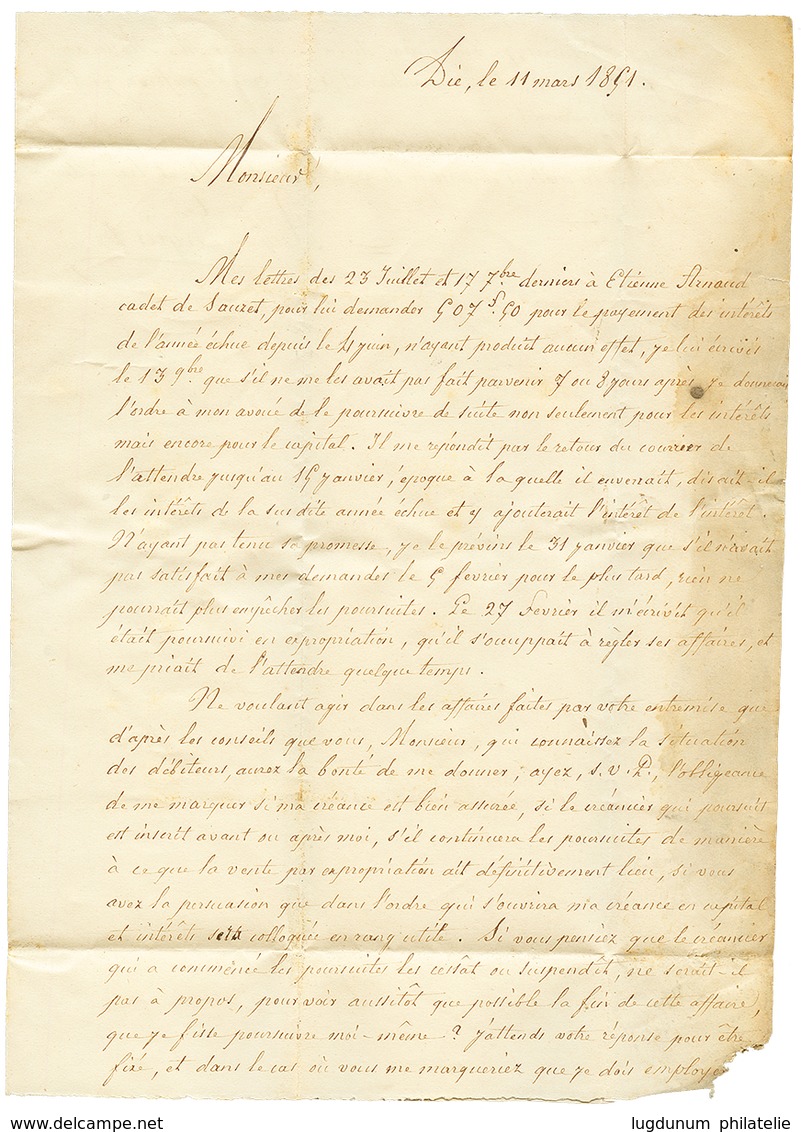 Die, le 11 mars 1851.
Monsieur,
Mes lettres des 23 Juillet et 17 7bre derniers à Etienne Arnaud
cadet de Sauzet, pour lui demander 507 f. 50 pour le payement des intérêts
de l'année échue depuis le 4 juin, n'ayant produit aucun effet, je lui écrivis
le 13 9bre que s'il ne me les avait pas fait parvenir 7 ou 8 jours après je donnerais
l'ordre à mon avoué de le poursuivre de suite non seulement pour les intérêts
mais encore pour le capital. Il me répondit par le retour du courrier de
l'attendre jusqu'au 15 janvier, époque à la quelle il enverrait, disait-il
les intérêts de la sus dite année échue et y ajouterait l'intérêt de l'intérêt.
N'ayant pas tenu sa promesse, je le prévins le 31 janvier que s'il n'avait
pas satisfait à mes demandes le 5 fevrier pour le plus tard, rien ne
pourrait plus empêcher les poursuites. Le 27 Fevrier il m'écrivit qu'il
était poursuivi en expropriation, qu'il s'occuppait à regler ses affaires, et
me priait de l'attendre quelque temps.
Ne voulant agir dans les affaires faites par votre entremise que
d'après les conseils que vous, Monsieur, qui connaissez la situation
des débiteurs, aurez la bonté de me donner; ayez, s.v.P., l'obligeance
de me marquer si ma créance est bien assurée, si le créancier qui poursuit
est inscrit avant ou après moi, s'il continuera les poursuites de manière
à ce que la vente par expropriation ait définitivement lieu, si vous
avez la persuasion que dans l'ordre qui s'ouvrira ma créance en capital
et intérêts sera colloquée en rang utile. Si vous pensiez que le créancier
qui a commencé les poursuites les cessât ou suspendît, ne serait-il
pas à propos, pour voir aussitôt que possible la fin de cette affaire,
que je fisse poursuivre moi-même? J'attends votre réponse pour être
fixé, et dans le cas où vous me marqueriez que je dois employer
lugdunum philatelie